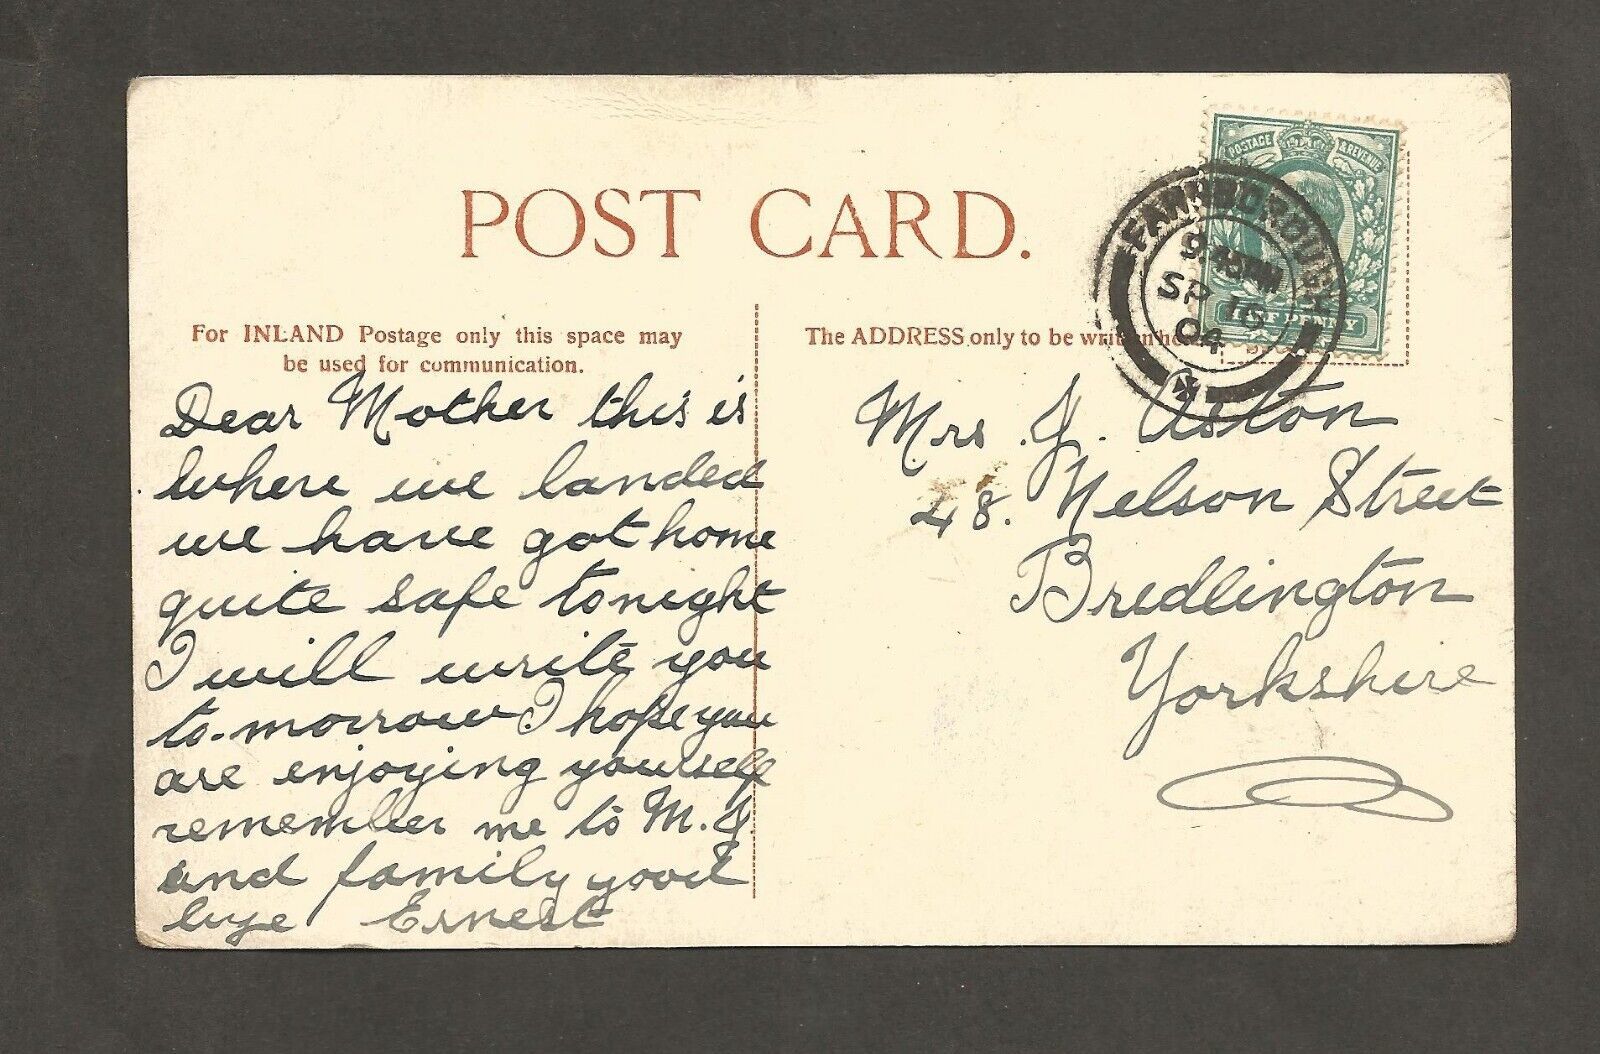 POST CARD.
For INLAND Postage only this space may
be used for communication.
Dear Mother this is
where we landed
we have got home
quite safe tonight
I will write you
to-morrow I hope you
are enjoying yourself
remember me to M. J.
and family good
bye Ernest
The ADDRESS only to be written here
Mrs. J. Aston
48. Nelson Street
Bredlington
Yorkshire
POSTAGE & REVENUE
HALF PENNY
FARNBOROUGH
9.45PM
SP 15
04